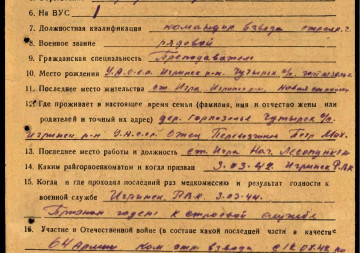 6. На ВУС 1
7. Должностная квалификация командир взвода стрелк.
8. Военное звание рядовой
9. Гражданская специальность Преподаватель
10. Место рождения У.А.С.С.Р. Игринск. р-н. Чутырск. с/с.
11. Последнее место жительства ст. Игра Игринск. р-н.
12. Где проживает в настоящее время семья (фамилия, имя и отчество жены или
родителей и точный их адрес) дер. Чутырск. с/с.
Игринск. р-н У.А.С.С.Р. Отец Петр Мих.
13. Последнее место работы и должность ст. Игра Нач. Лесопункта
14. Каким райгорвоенкоматом и когда призван 3.03.42. Игринск. РВК
15. Когда и где проходил последний раз медкомиссию и результат годности к
военной службе Игринск. РВК. 3.03.42.
Признан годен к строевой службе
16. Участие в Отечественной войне (в составе какой последней части в качестве
64 Армии Ком. стр. взвода с